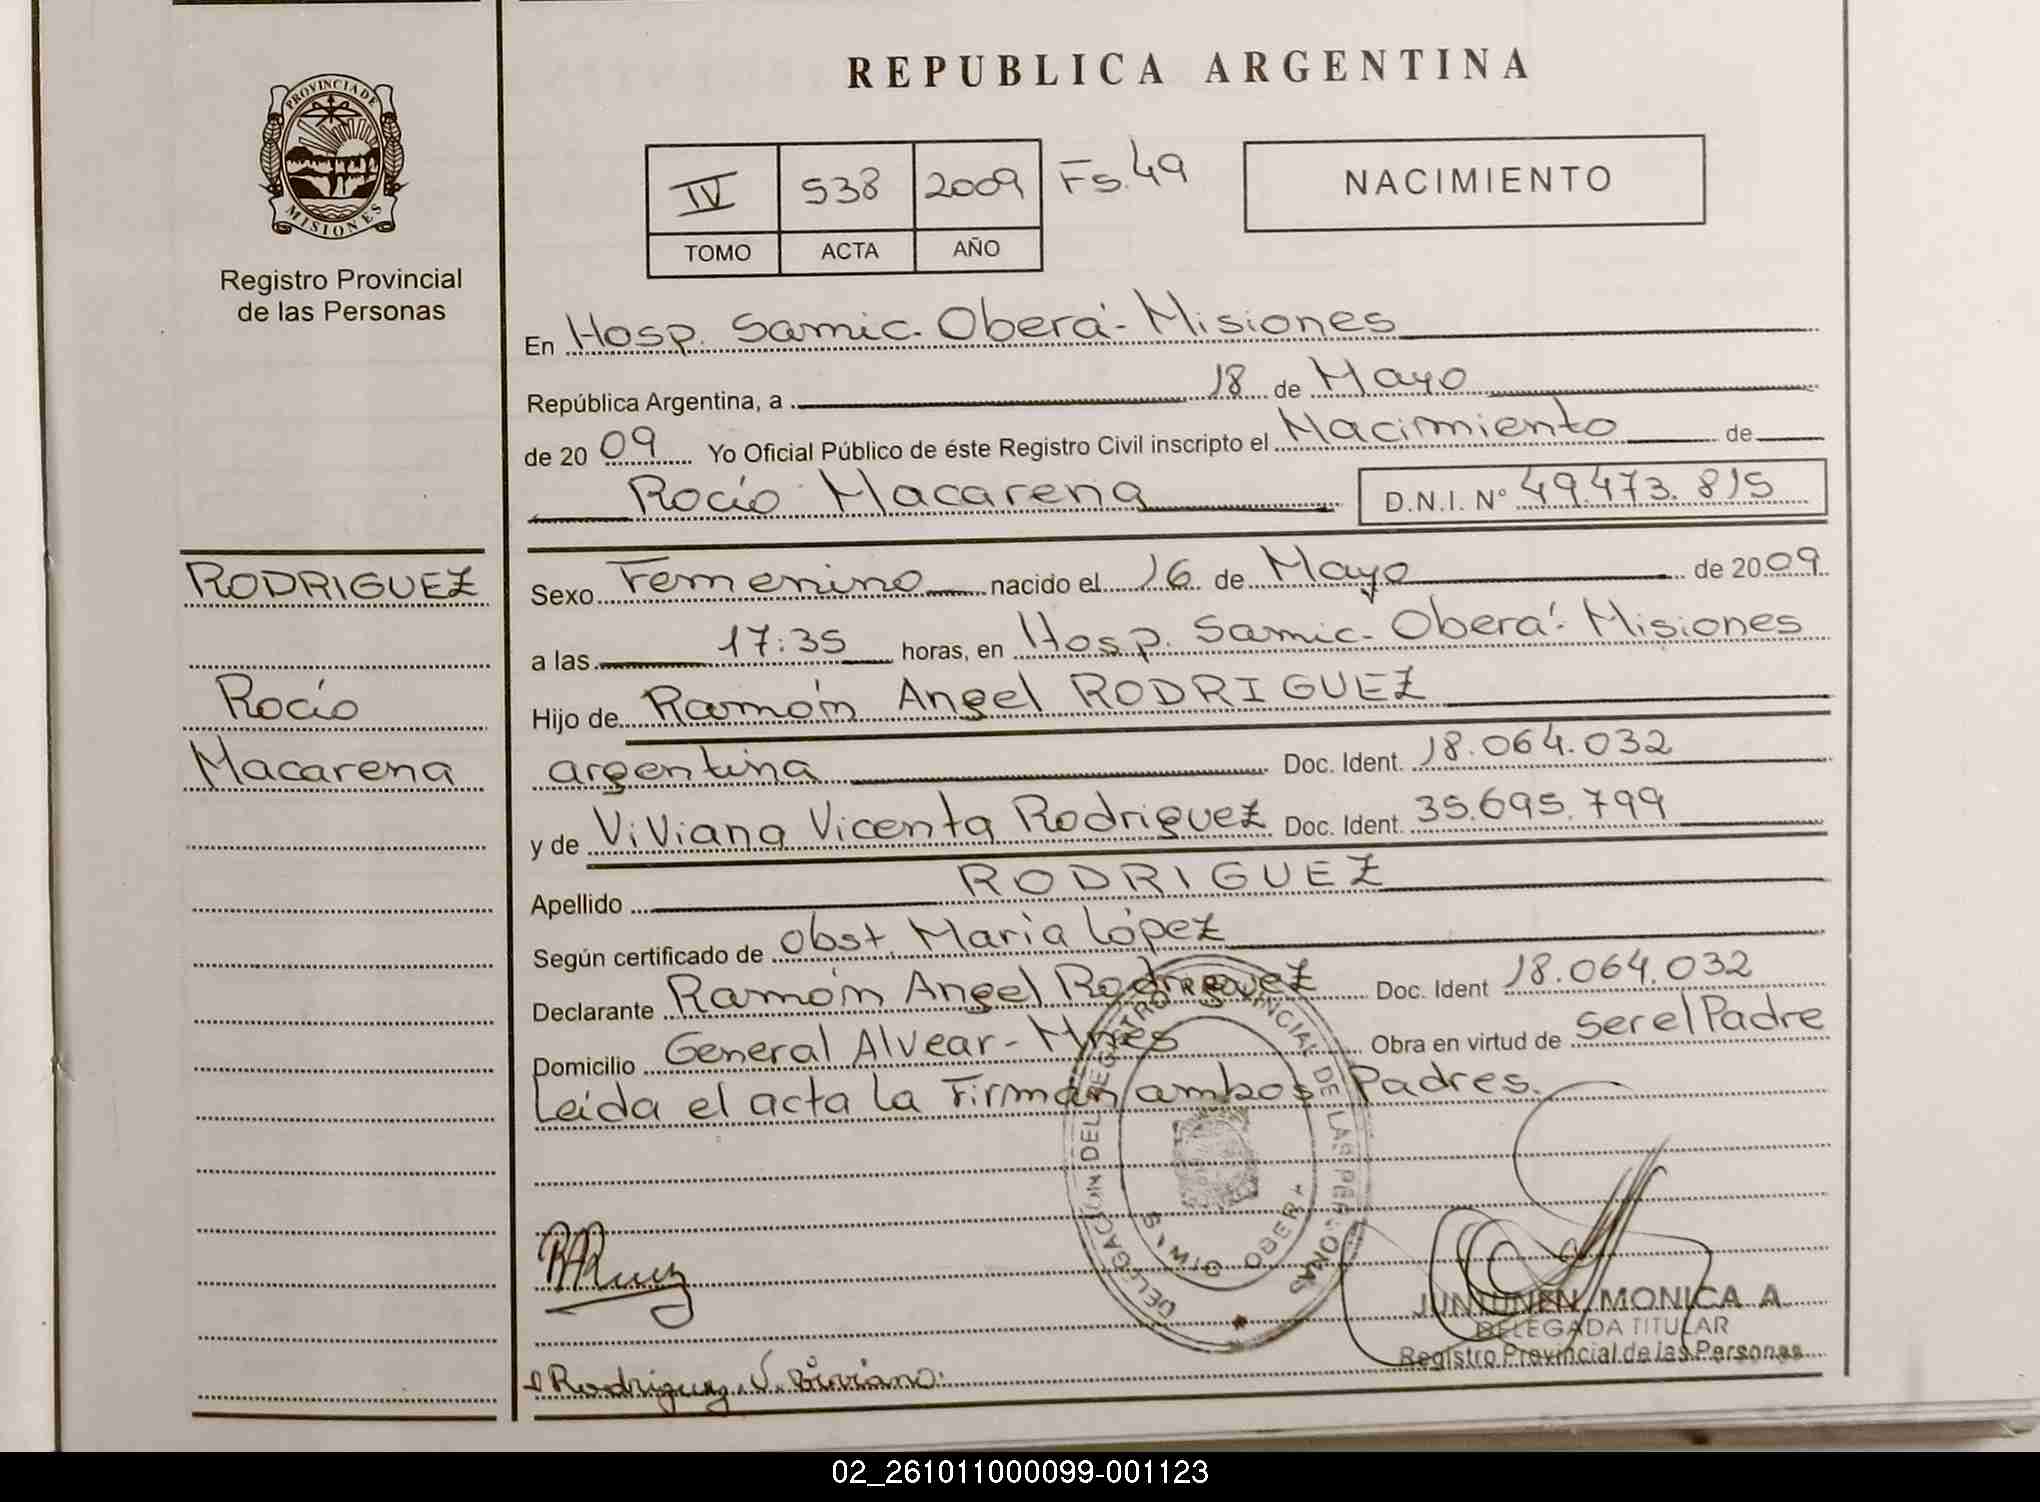 REPUBLICA ARGENTINA
PROVINCIA DE
MISIONES
Registro Provincial
de las Personas
IV 538 2009 Fs. 49
TOMO ACTA AÑO
NACIMIENTO
En Hosp. Samic. Oberá - Misiones
República Argentina, a 18 de Mayo
de 2009 Yo Oficial Público de éste Registro Civil inscripto el Nacimiento de
Rocío Macarena D.N.I. N° 49.473.815
RODRIGUEZ
Rocío
Macarena
Sexo Femenino nacido el 16 de Mayo de 2009
a las 17:35 horas, en Hosp. Samic. Oberá - Misiones
Hijo de Ramón Angel RODRIGUEZ
argentina Doc. Ident. 18.064.032
y de Viviana Vicenta Rodriguez Doc. Ident. 35.695.799
Apellido RODRIGUEZ
Según certificado de obst. Maria López
Declarante Ramón Angel Rodriguez Doc. Ident 18.064.032
Domicilio General Alvear - Mnes Obra en virtud de ser el Padre
Leída el acta la Firman ambos Padres.
DELEGACIÓN DEL REGISTRO PROVINCIAL DE LAS PERSONAS
OBERA
JUNIUNEN, MONICA A
DELEGADA TITULAR
Registro Provincial de las Personas
Rodriguez V. Viviana
02_261011000099-001123